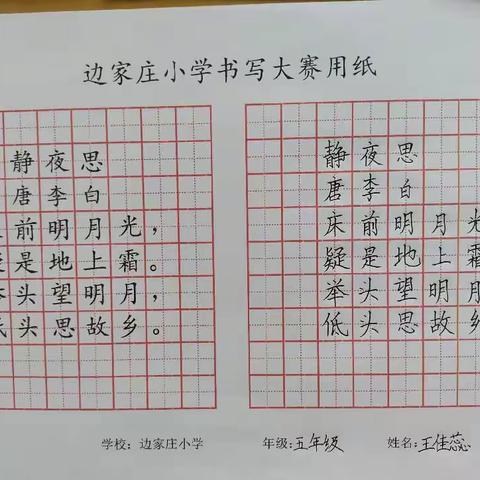 边家庄小学书写大赛用纸
静夜思
唐李白
前明月光，
疑是地上霜。
举头望明月，
低头思故乡。
静夜思
唐李白
床前明月光
疑是地上霜
举头望明月
低头思故乡
学校：边家庄小学 年级：五年级 姓名：王佳蕊